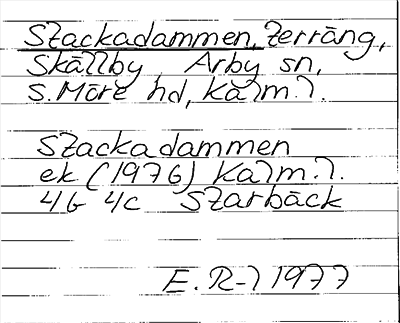 Stackadammen, terräng,
Skällby, Arby sn,
S. Möre hd, Kalm. l.
Stackadammen
ek (1976) Kalm. l.
4G 4c Starbäck
E. R-l 1977